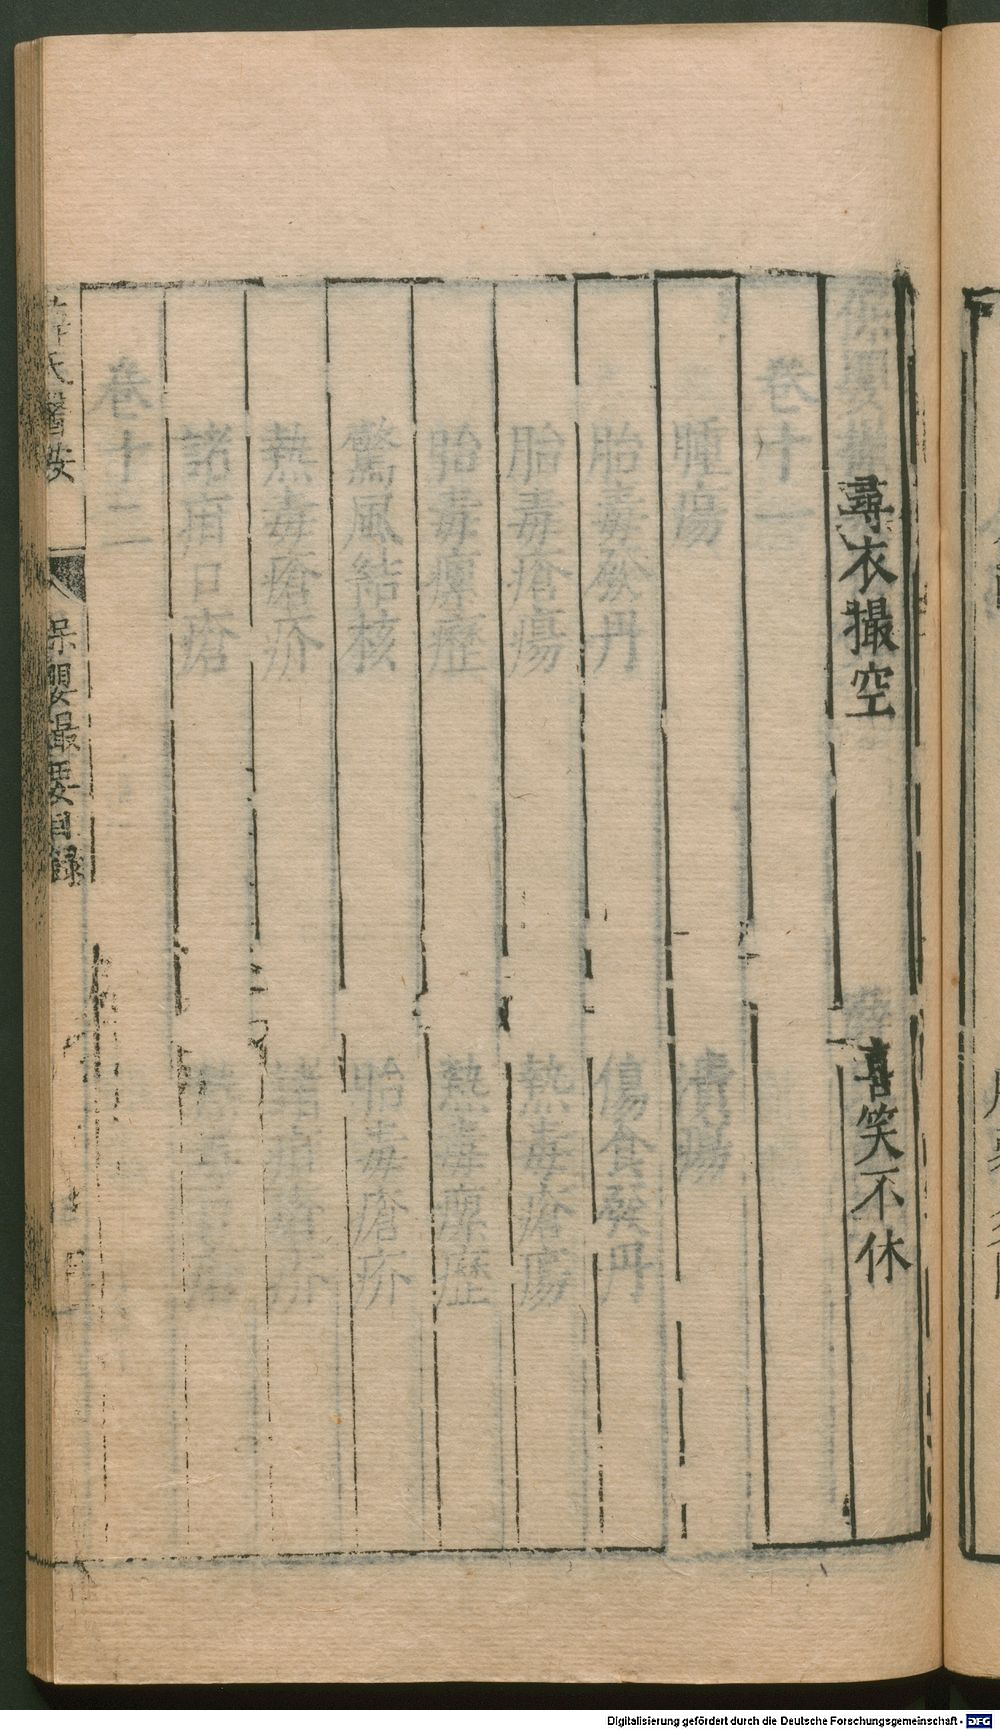 尋衣撮空 喜笑不休
卷十一
腫瘍 潰瘍
胎毒發丹 傷食發丹
胎毒瘡瘍 熱毒瘡瘍
胎毒瘰癧 熱毒瘰癧
驚風結核 胎毒瘡疥
熱毒瘡疥 諸疳瘡疥
諸疳口瘡
卷十二
薛氏醫按 保嬰撮要目錄
Digitalisierung gefördert durch die Deutsche Forschungsgemeinschaft - DFG